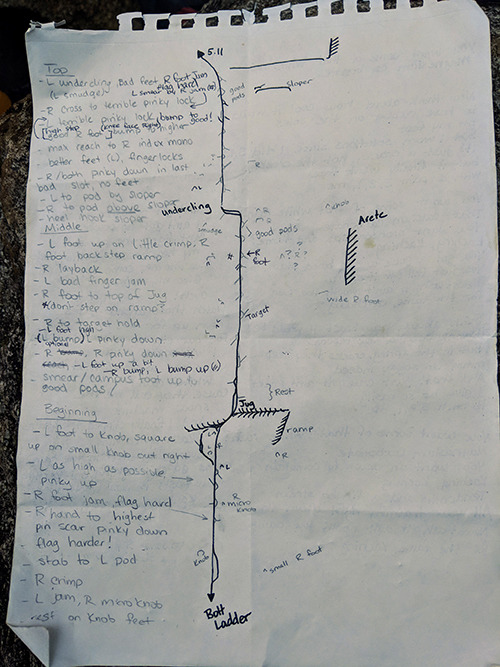 Top
- L undercling, Bad feet, R foot Jam
(L smudge) L smear by R jam (!!) flag hard!
- R cross to terrible pinky lock
- L terrible pinky lock, bump to good!
[high step (knee face right)
good R foot] bump to higher
- max reach to R index mono
- better feet (L), fingerlocks
- R/both pinky down in last
bad slot, no feet
- L to pod by sloper
- R to pod above sloper
- heel hook sloper
Middle
- L foot up on little crimp, R
foot backstep ramp
- R layback
- L bad finger jam
- R foot to top of Jug
*don't step on ramp?
- R to target hold
- L foot high
(L bump) L pinky down
optional
- R pinky down
- L foot up a bit
- R bump, L bump up
- smear/campus foot up to
good pods!
Beginning
- L foot to knob, square
up on small knob out right
- L as high as possible,
pinky up
- R foot jam, flag hard
- R hand to highest
pin scar pinky down
flag harder!
- stab to L pod
- R crimp
- L jam, R micro knob
rest on knob feet
5.11
good
pods
sloper
R
L
undercling
knob
R
smudge
good pods
R
foot
? R ?
?
Arete
wide R foot
Target
Rest
Jug
ramp
R
L
R
micro
knob
Knob
small R foot
Bolt
Ladder